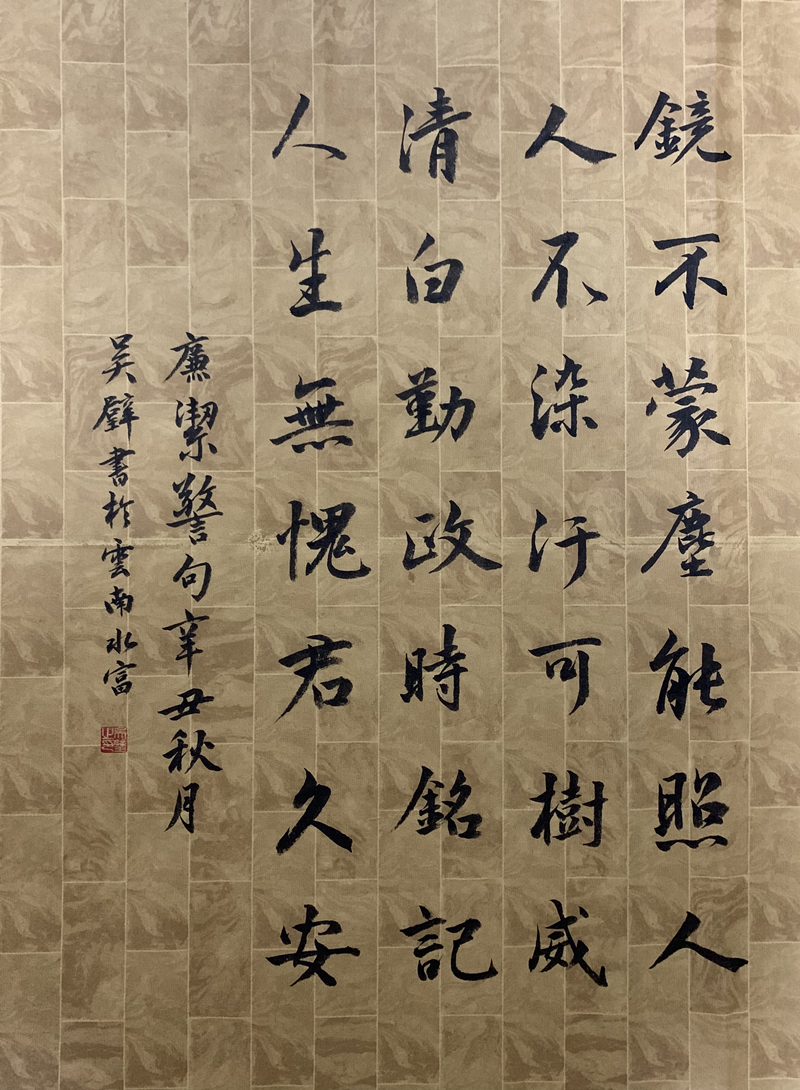 鏡不蒙塵能照人
人不染汙可樹威
清白勤政時銘記
人生無愧君久安
廉潔警句辛丑秋月
吴壁書於雲南水富